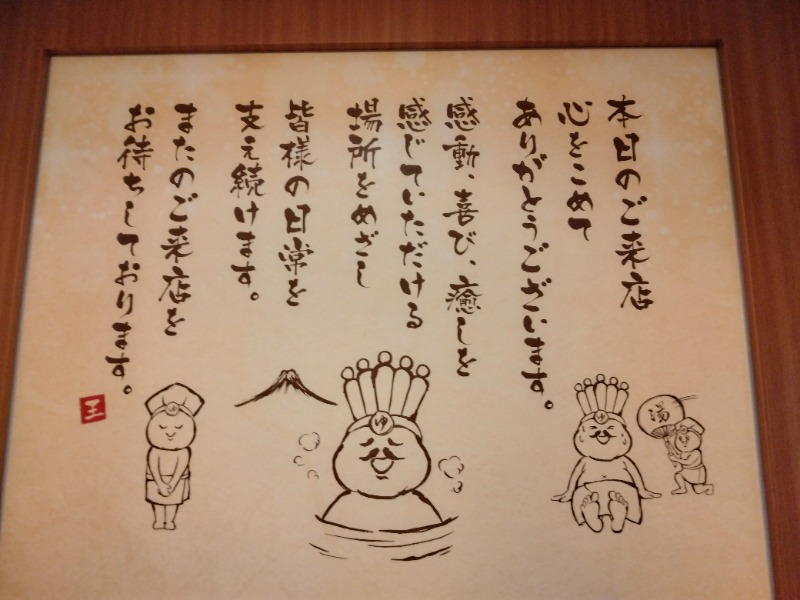 本日のご来店
心をこめて
ありがとうございます。
感動、喜び、癒しを
感じていただける
場所をめざし
皆様の日常を
支え続けます。
またのご来店を
お待ちしております。
王
ゆ
ゆ
ゆ
湯